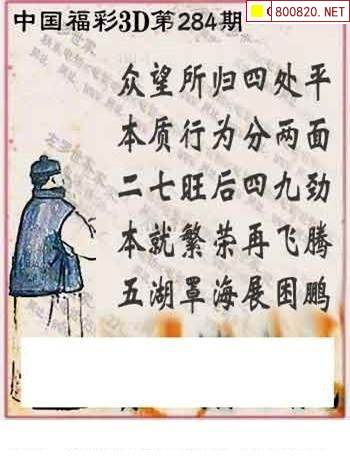 中国福彩3D第284期
800820.NET
众望所归四处平
本质行为分两面
二七旺后四九劲
本就繁荣再飞腾
五湖罩海展困鹏